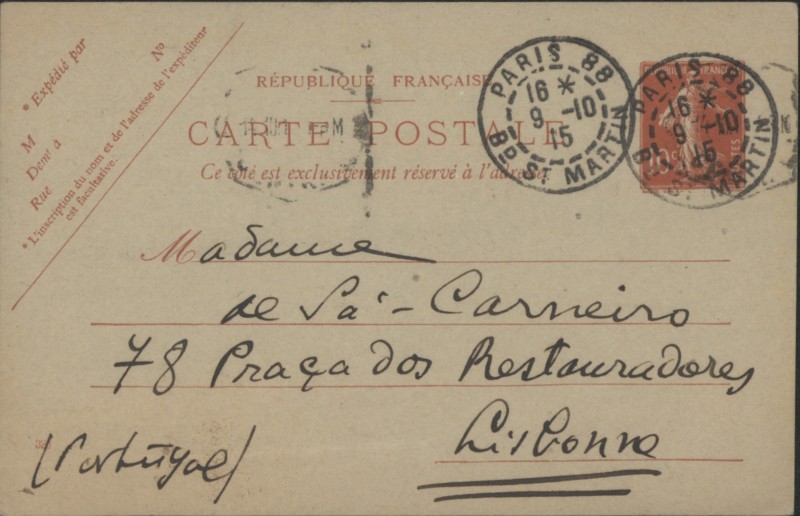 * Expédié par
N°
M
Demt à
Rue
* L'inscription du nom et de l'adresse de l'expéditeur
est facultative.
RÉPUBLIQUE FRANÇAISE
CARTE POSTALE
Ce côté est exclusivement réservé à l'adresse.
PARIS 88
16 *
9 -10
15
Bd ST MARTIN
PARIS 88
16 *
9 -10
15
Bd ST MARTIN
Madame
de Sá-Carneiro
78 Praça dos Restauradores
Lisbonne
(Portugal)